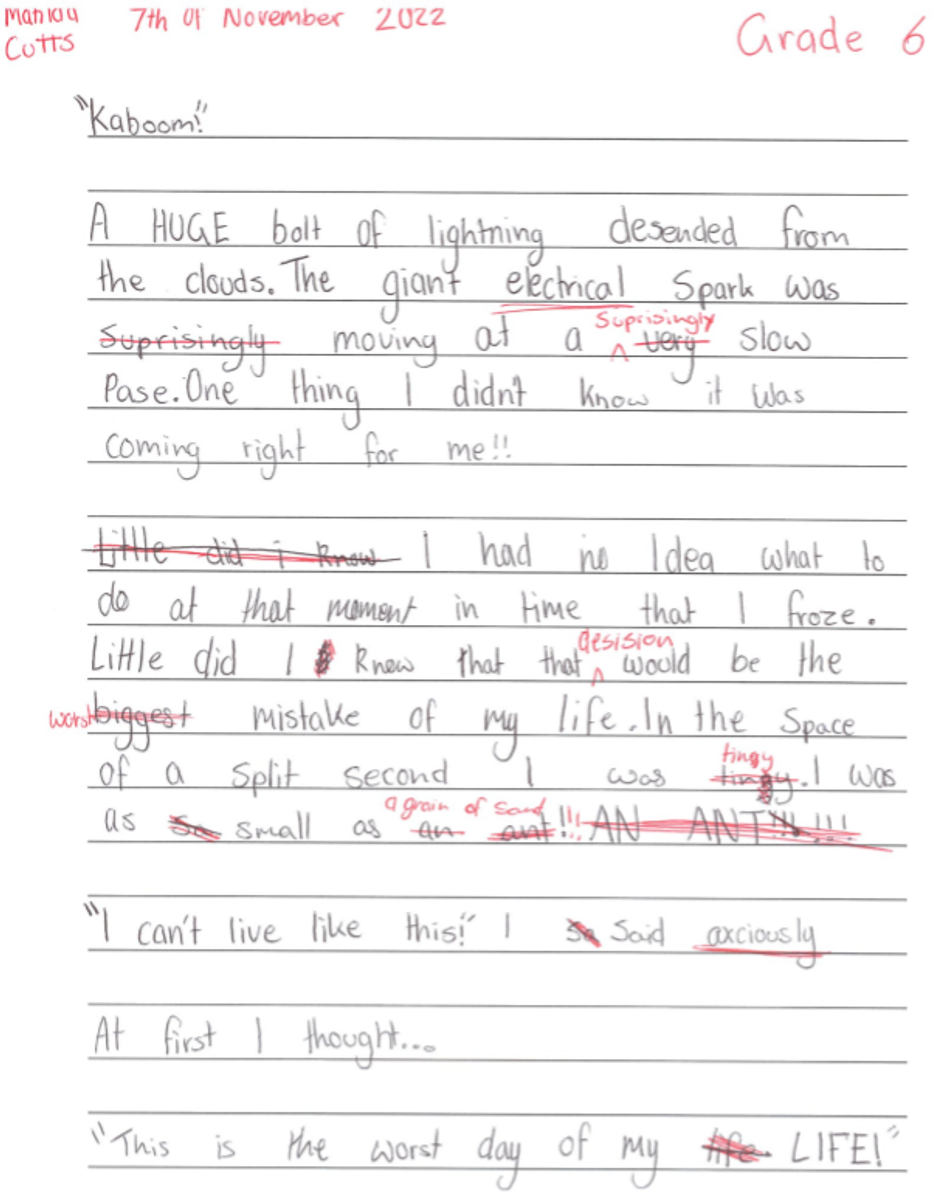 7th of November 2022
Cutts
Grade 6
"Kaboom!"
A HUGE bolt of lightning desended from
the clouds. The giant electrical Spark was
suprisingly moving at a suprisingly very slow
Pase. One thing I didn't know it was
coming right for me!!
Little did i know I had no Idea what to
do at that moment in time that I froze.
Little did I know that that desision would be the
worst biggest mistake of my life. In the Space
of a split second I was tingy tingy. I was
as so small as a grain of sand an ant!!! AN ANT!!! !!!
"I can't live like this!" I so said axciously
At first I thought...
"This is the worst day of my life LIFE!"